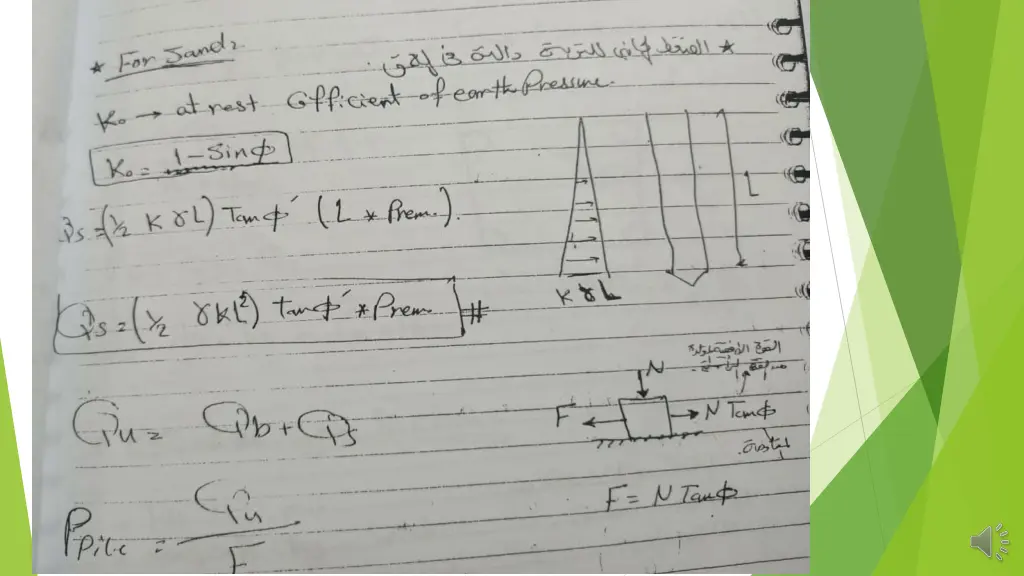 * For Sand:
* الضغط الجانبي للتربة دالة في
K₀ → at rest Cofficient of earth Pressure.
K₀ = 1 - Sinφ
Qs = (½ K γ L) Tanφ' (L * Prem.).
L
K γ L
Qs = (½ γ K L²) Tanφ' * Prem. #
القوة الأفقية
N
F
N Tanφ
Qu = Qb + Qs
F = N Tanφ
Ppile = Qu / F